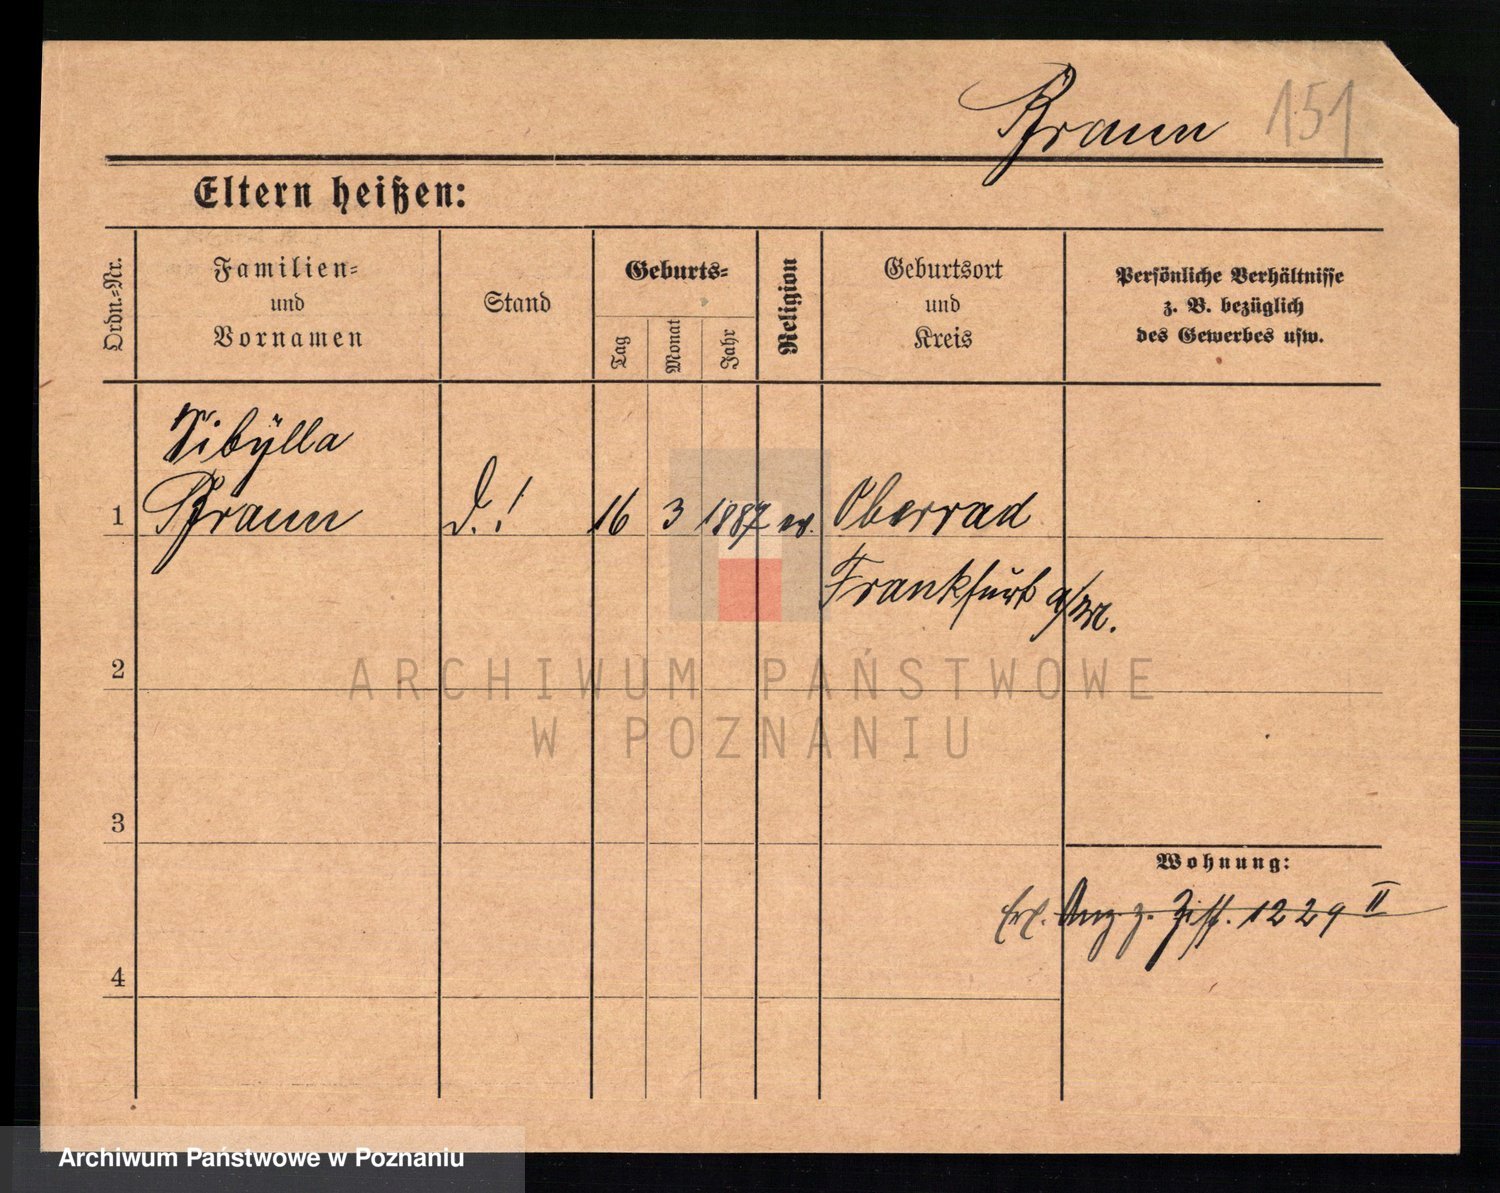 Braun 151
Eltern heißen:
Ordn.=Nr.
Familien=
und
Vornamen
Stand
Geburts=
Tag
Monat
Jahr
Religion
Geburtsort
und
Kreis
Persönliche Verhältnisse
z. B. bezüglich
des Gewerbes usw.
Sibÿlla
1 Braun D.! 16 3 1887 ev. Oberrad
Frankfurt a/M.
2
3
4
Wohnung:
Erl. Anz. z. Ziff. 1229 II
ARCHIWUM PAŃSTWOWE
W POZNANIU
Archiwum Państwowe w Poznaniu